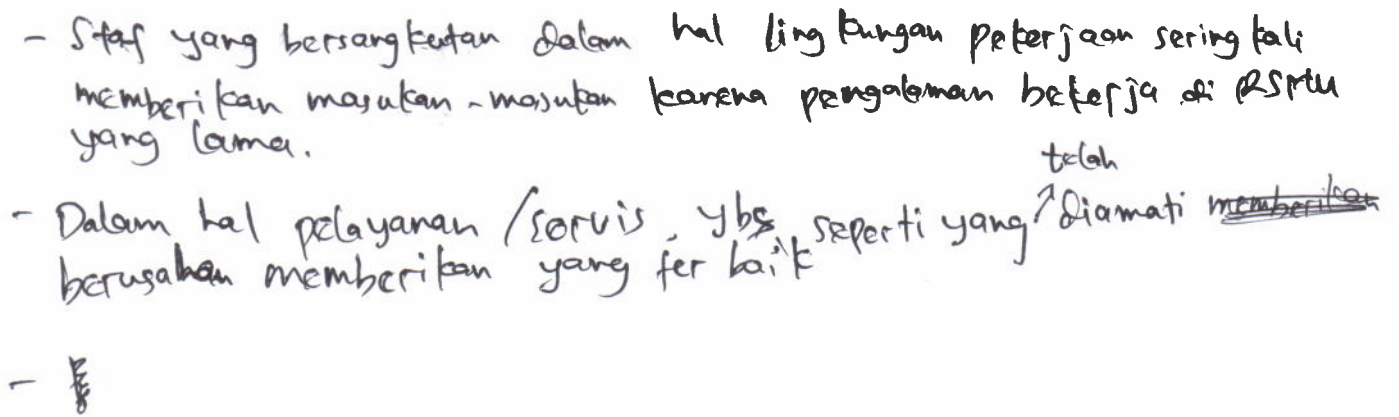 - Staf yang bersangkutan dalam hal lingkungan pekerjaan seringkali
memberikan masukan-masukan karena pengalaman bekerja di RSMU
yang lama.
- Dalam hal pelayanan/servis, ybs, seperti yang telah diamati
berusahan memberikan yang terbaik
-